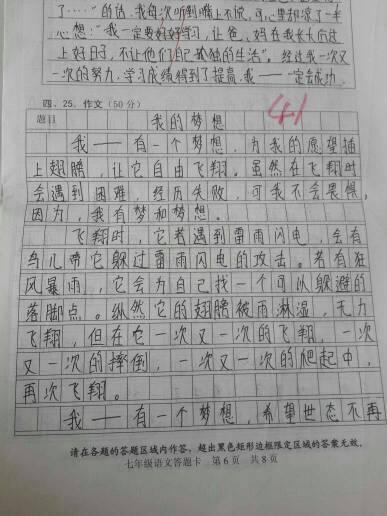 了……”的话，我每次听到嘴上不说，可心里却凉了一半
心想：“我一定要好好学习，让爸、妈在我长大后过
上好日子，不让他们自己孤独的生活”。经过我一次又
一次的努力，学习成绩得到了提高，我——一定会成功
四、25. 作文（50分）
41
题目 我的梦想
我——有一个梦想，为我的愿望插
上翅膀，让它自由飞翔。虽然在飞翔时
会遇到困难，经历失败，可我不会畏惧。
因为，我有梦和梦想。
飞翔时，它若遇到雷雨闪电，会有
鸟儿带它躲过雷雨闪电的攻击。若有狂
风暴雨，它会为自己找一个可以躲避的
落脚点。纵然它的翅膀被雨淋湿，无力
飞翔，但在它一次又一次的飞翔，一次
又一次的摔倒，一次又一次的爬起中，
再次飞翔。
我——有一个梦想，希望世态不再
请在各题的答题区域内作答，超出黑色矩形边框限定区域的答案无效。
七年级语文答题卡 第6页 共8页